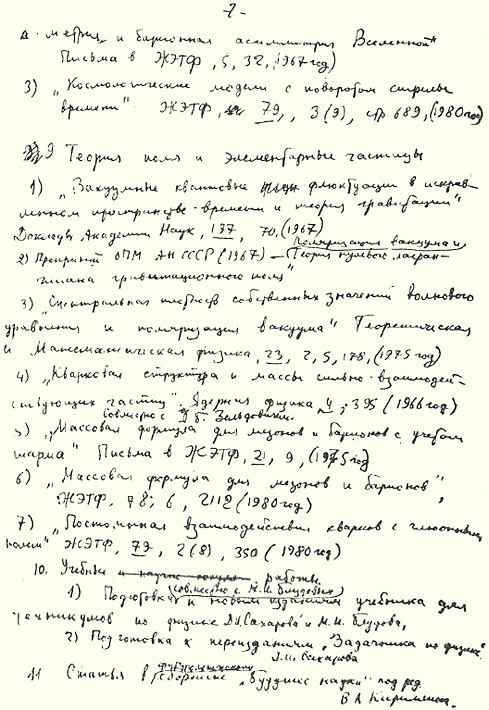 -2-
А. метрики и барионная асимметрия Вселенной"
Письма в ЖЭТФ, 5, 32, (1967 год)
3) "Космологические модели с поворотом стрелы
времени" ЖЭТФ, 79, , 3(9), стр. 689, (1980 год)
9 Теория поля и элементарные частицы
1) "Вакуумные квантовые флюктуации в искрив-
ленном пространстве-времени и теория гравитации"
Доклады Академии Наук, 177, 70, (1967)
2) Препринт ОПМ АН СССР (1967) – поляризация вакуума и
"Теория нулевого лагран-
жиана гравитационного поля"
3) "Спектральная плотность собственных значений волнового
уравнения и поляризация вакуума" Теоретическая
и Математическая физика, 23, 2, 5, 178, (1975 год)
4) "Кварковая структура и массы сильно-взаимодей-
ствующих частиц", Ядерная физика 4, 395 (1966 год)
Совместно с Я Б. Зельдовичем.
5) "Массовая формула для мезонов и барионов с учетом
шарма" Письма в ЖЭТФ, 21, 9, (1975 год)
6) "Массовая формула для мезонов и барионов",
ЖЭТФ, 78, 6, 2112 (1980 год)
7) "Постоянная взаимодействия кварков с глюонным
полем" ЖЭТФ, 79, 2(8), 350 (1980 год)
10. Учебные работы.
(совместно с М.И. Блудовым)
1) Подготовка к новым изданиям учебника для
техникумов по физике Д.И. Сахарова и М.И. Блудова,
2) Подготовка к переизданиям "Задачника по физике"
Д.И. Сахарова
11 Статья в футурологическом
сборнике "Будущее науки" под ред
В А Кириллина.